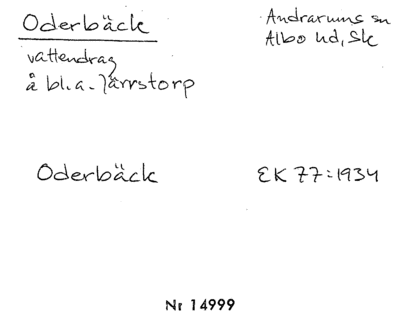 Oderbäck
Andrarums sn
Albo hd, Sk
vattendrag
å bl.a. Järrstorp
Oderbäck
EK 77:1934
Nr 14999